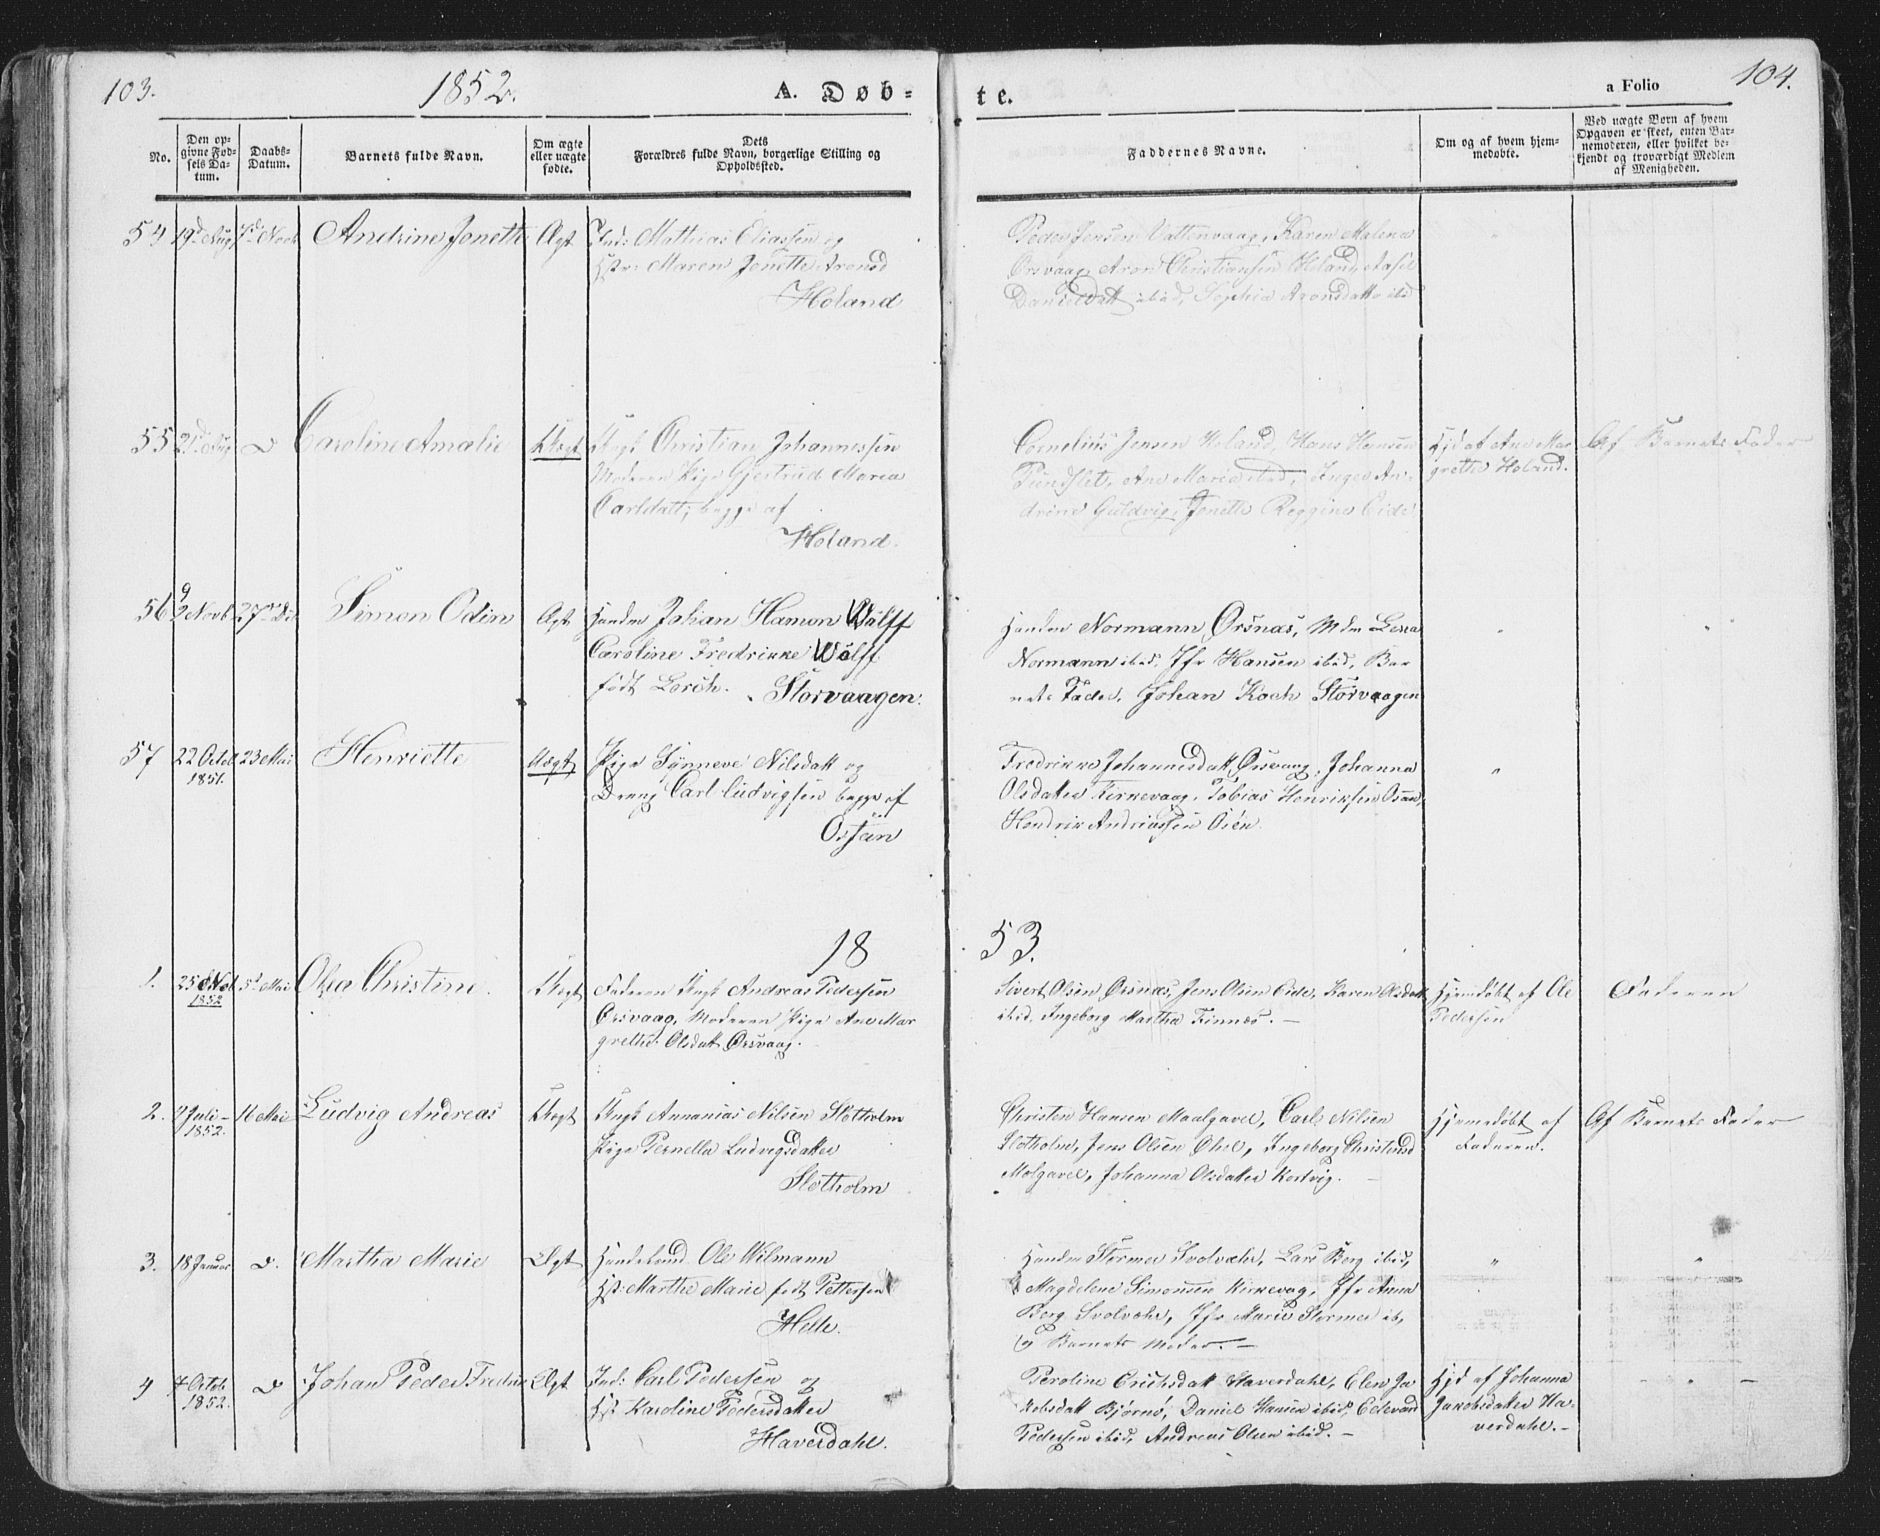 103.
1852.
A. Døb-
te.
a Folio
104.
No.
Den op-
givne Fød-
sels Da-
tum.
Daabs-
Datum.
Barnets fulde Navn.
Om ægte
eller uægte
fødte.
Dets
Forældres fulde Navn, borgerlige Stilling og
Opholdssted.
Faddernes Navne.
Om og af hvem hjem-
medøbte.
Ved uægte Børn af hvem
Opgaven er skeet, enten Bar-
nemoderen, eller hvilket be-
kjendt og troværdigt Medlem
af Menigheden.
54 19d Aug Novb Andrine Jonette Ægt Ind: Mathias Eliassen og
Hstr: Maren Jonette Aronsd
Holand
Peder Jensen Vattenvaag, Karen Malena
Ørsvaag, Aron Christiansen Holand,
Danielsdtt ibid, Sophia Aronsdatter ibid
55 21d Aug D Caroline Amalie Uægt Ungk Christian Johannessen
Moderen Pige Gjertrud Maria
Carlsdatt, begge af
Holand.
Cornelius Jensen Holand, Hans Hansen
Pundslet, Ane Maria ibid, Inger An-
drine Guldvig, Jonette Reggine Eide
Hjd af Ane Mar
grethe Holand.
Af Barnets Fader
56 29 Novb 27de Simon Odin Ægt Handm Johan Hamon Wolff
Caroline Fredrikke Wolff
født Lorch. Storvaagen.
Handm Normann Ørsnæs, Mdm Lena
Normann ibid, Jfr Hansen ibid, Bar
nets Fader, Johan Koch Storvaagen
57 22 Octob 23 Mai Henriette Uægt Pige Synneve Nilsdatt og
1851.
Dreng Carl Ludvigsen begge af
Ossan
Fredrikke Johannesdatt Ørsvaag, Johanna
Olsdatter Kirkevaag, Tobias Henriksen Osan,
Hendrik Andreassen Osen.
18
53.
1. 25 Nov 5d Mai Olea Christine Uægt Faderen Ungk Andreas Pedersen
1852
Ørsvaag, Moderen Pige Ane Mar
grethe Olsdatt Ørsvaag.
Sivert Olsen Ørsnæs, Jens Olsen Eide, Karen Olsdatt
ibid, Ingeborg Martha Finnæs. —
Hjemdøbt af Ole
Pedersen
Faderen
2. 9 Juli 16 Mai Ludvig Andreas Uægt Ungk Annanias Nilsen Slotholm
1852.
Pige Pernella Ludvigsdatter
Slotholm
Christen Hansen Maalgavel, Carl Nilsen
Slotholm, Jens Olsen, Ingeborg Christensd
Molgavel, Johanna Olsdatter Kortvig.
Hjemdøbt af
Faderen.
Af Barnets Fader
3. 18 Januar D. Martha Marie Ægt Ole Wilmann
Hst: Marthe Marie født Pettersen
Helle.
Handm Størmer Svolvæhr, Lars Berg ibid,
Magdelene Simonsen Kirkevog, Jfr Anna
Berg Svolvæhr, Jfr Marie Størmer ib,
og Barnets Moder. —
4 7 Octob D Johan Peder Fredrik Ægt Ind: Carl Pedersen og
1852.
Hst Karoline Pedersdatter
Haverdahl.
Peroline Erichsdatt Haverdahl, Elen Ja
kobsdatt Bjørnø, Daniel Hansen ibid, Edevard
Pedersen ibid, Andreas Olsen ibid. —
Hjd af Johanna
Jakobsdatter Ha-
verdahl. —